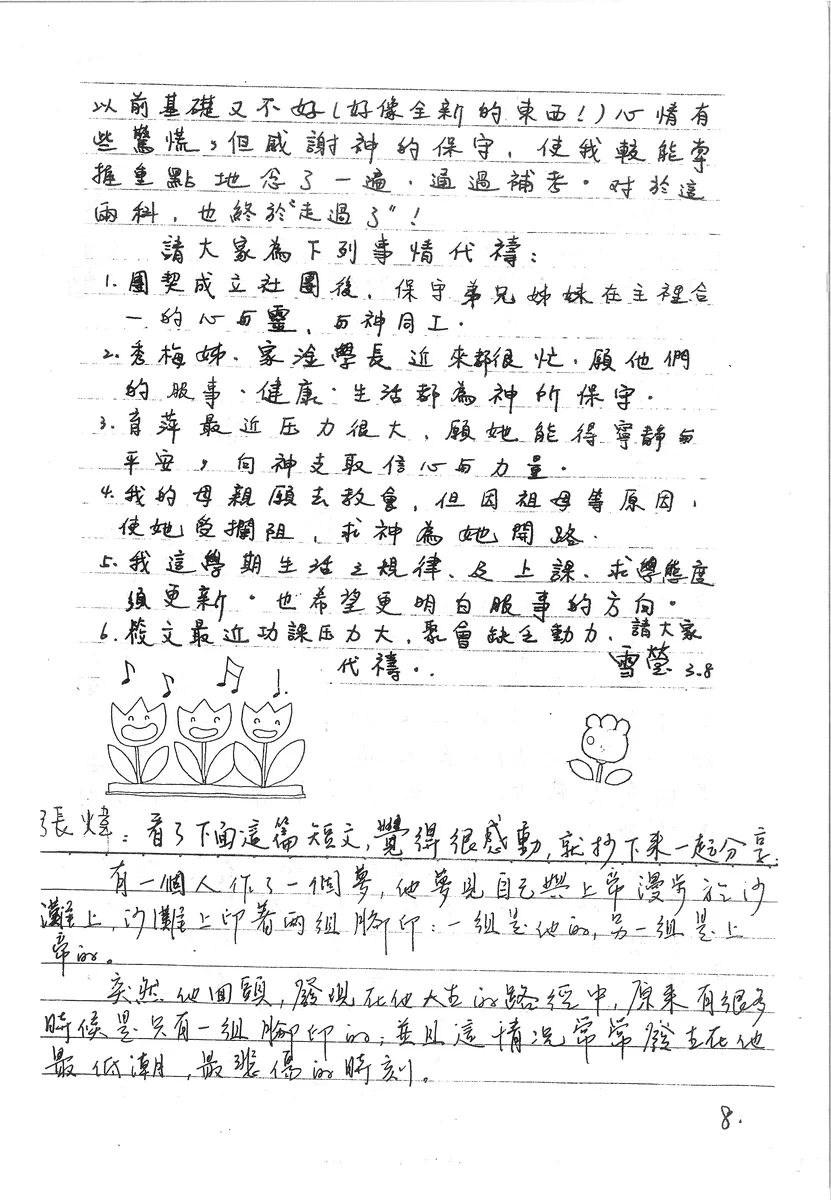 以前基礎又不好(好像全新的東西!)心情有
些驚慌,但感謝神的保守,使我較能掌
握重點地念了一遍.通過補考。对於這
兩科,也終於"走過了"!
請大家為下列事情代禱:
1.團契成立社團後,保守弟兄姊妹在主裡合
一的心与靈,与神同工.
2.秀梅姊.家淦學長近來都很忙.願他們
的服事.健康.生活都為神所保守.
3.育萍最近压力很大,願她能得寧靜与
平安,向神支取信心与力量.
4.我的母親願去教會,但因祖母等原因,
使她受攔阻,求神為她開路.
5.我這學期生活之規律、及上課、求學態度
須更新.也希望更明白服事的方向.
6.文最近功課压力大,聚會缺乏動力,請大家
代禱..
雪瑩 3.8
張煒:看了下面這篇短文,覺得很感動,就抄下來一起分享.
有一個人作了一個夢,他夢見自己與上帝漫步於沙
灘上,沙灘上印著兩組腳印:一組是他的,另一組是上
帝的。
突然他回頭,發現在他人生的路徑中,原來有很多
時候是只有一組腳印的;並且這情况常常發生在他
最低潮,最悲傷的時刻。
8.